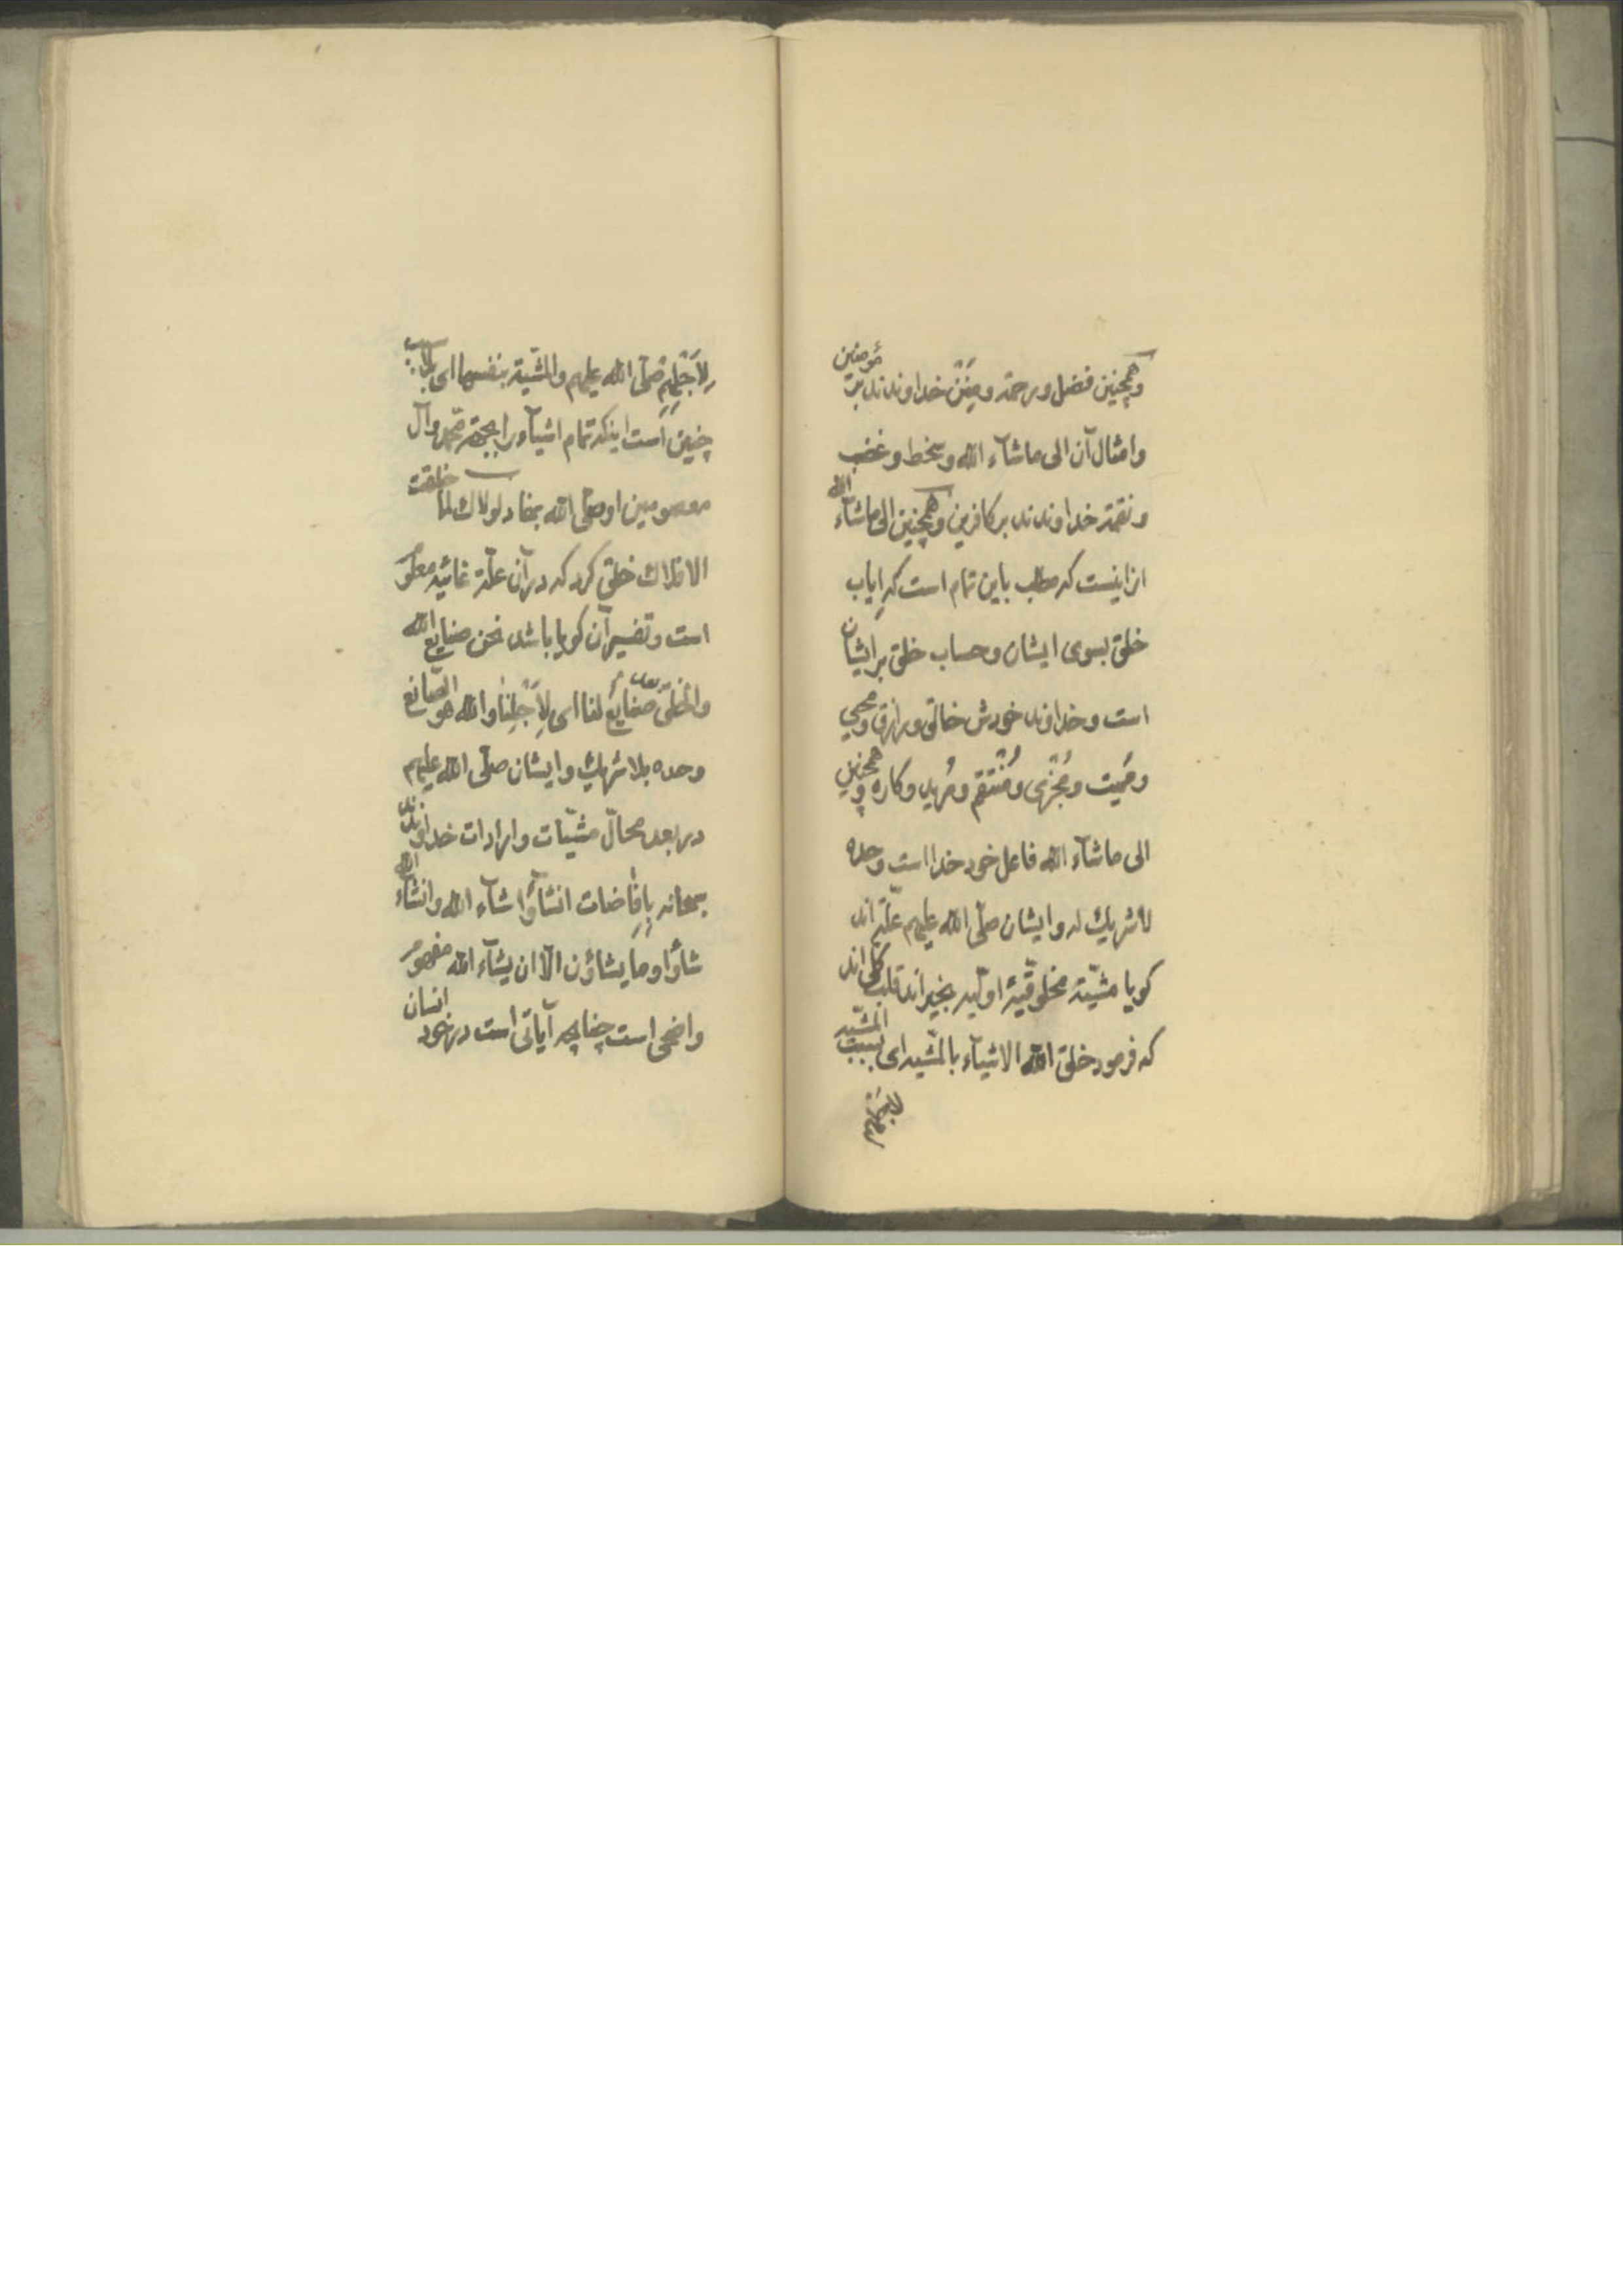 وهمچنین فضل و رحمة و مِنَنْ خداوندند بر مؤمنین
وامثال آن الی ماشآء الله وسخط وغضب
ونقمة خداوندند بر کافرین وهمچنین الی ماشآء الله
از اینست که مطلب باین تمام است که ایاب
خلق بسوی ایشان وحساب خلق بر ایشان
است وخداوند خودش خالق ورازق ومحیی
ومُمیت ومُجْزی ومُنْتَقِم ومُرید وکاره وهمچنین
الی ماشآء الله فاعل خود خدا است وحده
لاشریك له وایشان صلّی الله علیهم علّة اند
کویا مشیّة مخلوقیّهٔ اولیه بخیراند قلب کلّی اند
که فرمود خلق الله الاشیآء بالمشیه ای بسبب المشیه
لِاَجْلِهِمْ
لِاَجْلِهِمْ صَلّی الله علیهم والمشیّة بنفسها ای بلا سبب
چنین است اینکه تمام اشیآء را بجهة محمد وآل
معصومین او صلّی الله بمفاد لولاك لما خلقت
الافلاك خلق کرد که در آن علّة غائیه معلوم
است وتفسیر آن کویا باشد نحن صنایع الله
والخلق بعد صنایعُ لنا ای لِاَجْلِنا والله هو الصّانع
وحده بلا شریك وایشان صلّی الله علیهم
در بعد محالّ مشیّات وارادات خداوندند
سبحانه بِافاضات انشآؤا شآء الله وانشآء الله
شآؤا وما یشاؤن الّا ان یشآء الله مفهوم
واضحی است چناچه آیاتی است در خود انسان